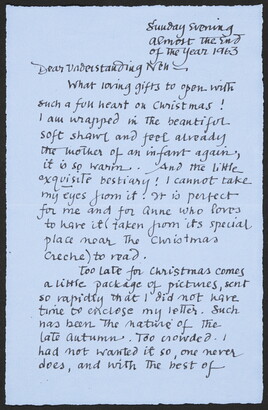 Sunday Evening
almost the End
of the Year 1963
Dear Understanding
What loving gifts to open with
such a full heart on Christmas!
I am wrapped in the beautiful
soft shawl and feel already
the mother of an infant again,
it is so warm. And the little
exquisite bestiary! I cannot take
my eyes from it! It is perfect
for me and for Anne who loves
to have it (taken from its special
place near the Christmas
Creche) to read.
Too late for Christmas comes
a little package of pictures, sent
so rapidly that I did not have
time to enclose my letter. Such
has been the nature of the
late autumn. Too crowded. I
had not wanted it so, one never
does, and with the best of